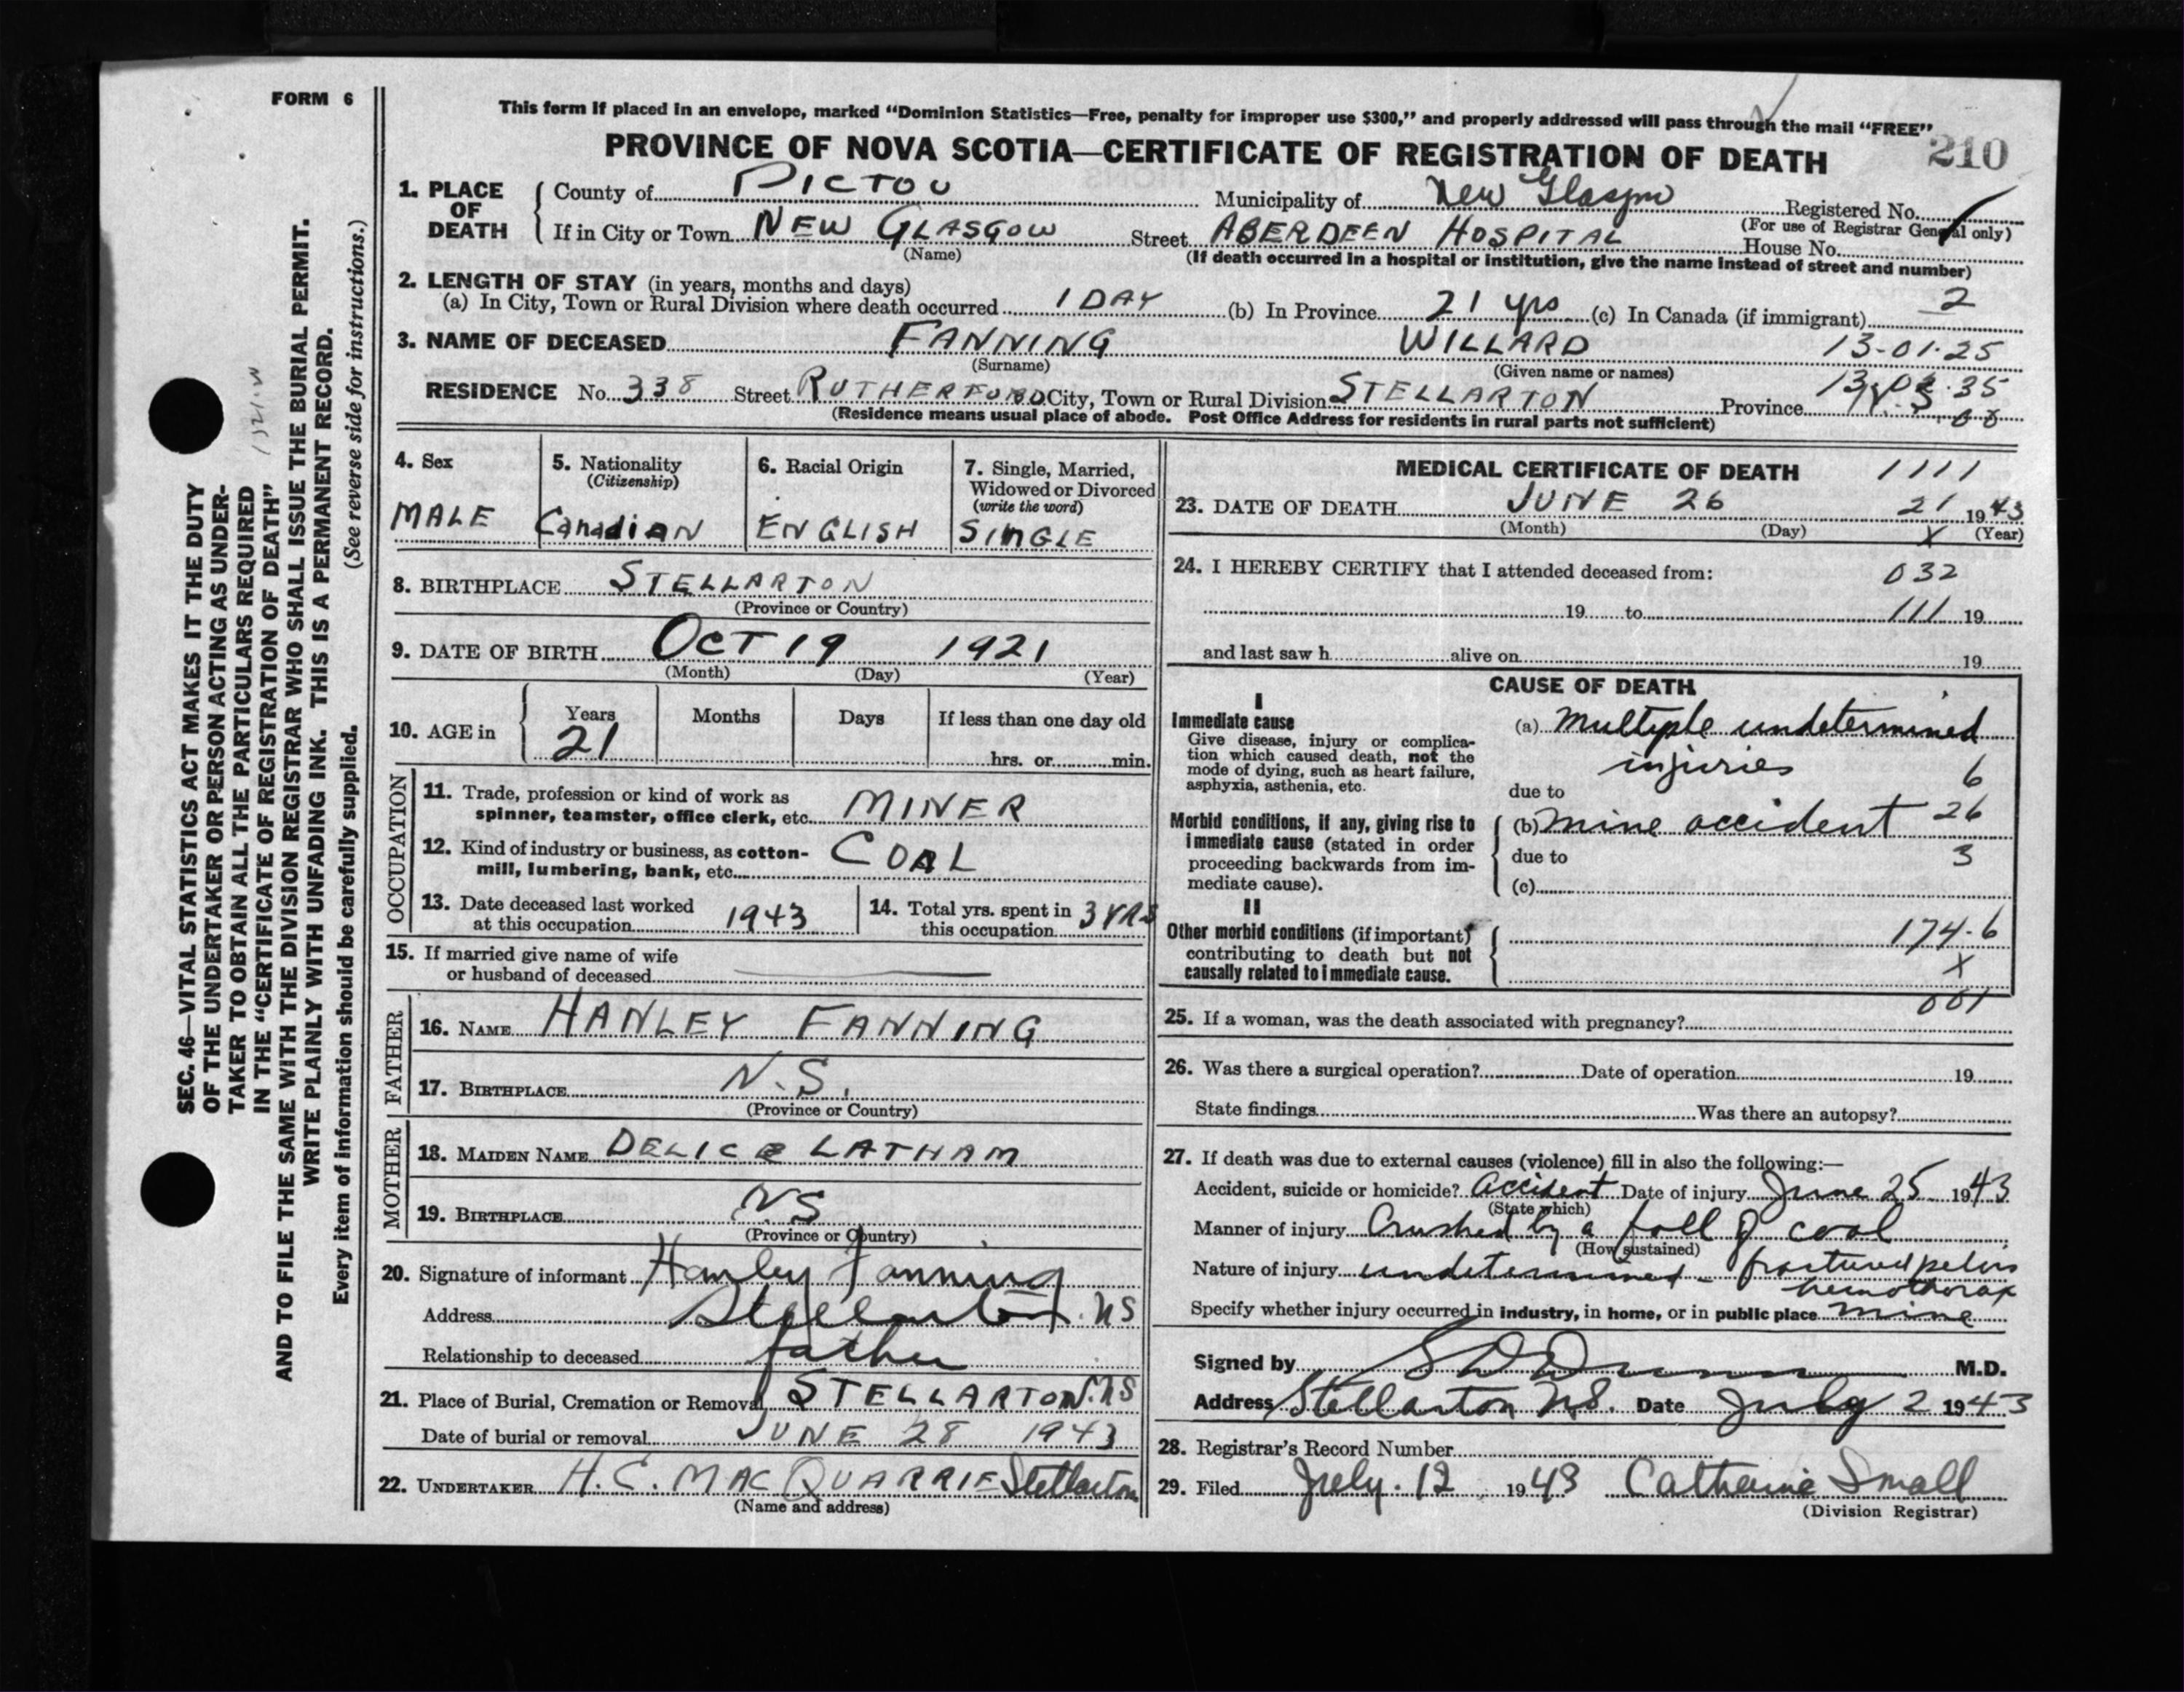 FORM 6
This form if placed in an envelope, marked "Dominion Statistics—Free, penalty for improper use $300," and properly addressed will pass through the mail "FREE"
PROVINCE OF NOVA SCOTIA—CERTIFICATE OF REGISTRATION OF DEATH
210
1. PLACE OF DEATH
County of PICTOU Municipality of New Glasgow Registered No.
(For use of Registrar General only)
If in City or Town NEW GLASGOW Street ABERDEEN HOSPITAL House No.
(Name) (If death occurred in a hospital or institution, give the name instead of street and number)
2. LENGTH OF STAY (in years, months and days)
(a) In City, Town or Rural Division where death occurred 1 DAY (b) In Province 21 yrs (c) In Canada (if immigrant) 2
3. NAME OF DECEASED FANNING WILLARD 13-01-25
(Surname) (Given name or names)
RESIDENCE No. 338 Street RUTHERFORD City, Town or Rural Division STELLARTON Province N.S
(Residence means usual place of abode. Post Office Address for residents in rural parts not sufficient)
SEC. 46—VITAL STATISTICS ACT MAKES IT THE DUTY
OF THE UNDERTAKER OR PERSON ACTING AS UNDER-
TAKER TO OBTAIN ALL THE PARTICULARS REQUIRED
IN THE "CERTIFICATE OF REGISTRATION OF DEATH"
AND TO FILE THE SAME WITH THE DIVISION REGISTRAR WHO SHALL ISSUE THE BURIAL PERMIT.
WRITE PLAINLY WITH UNFADING INK. THIS IS A PERMANENT RECORD.
Every item of information should be carefully supplied. (See reverse side for instructions.)
4. Sex 5. Nationality 6. Racial Origin 7. Single, Married,
(Citizenship) Widowed or Divorced
(write the word)
MALE Canadian ENGLISH SINGLE
8. BIRTHPLACE STELLARTON
(Province or Country)
9. DATE OF BIRTH OCT 19 1921
(Month) (Day) (Year)
10. AGE in Years Months Days If less than one day old
21 hrs. or min.
OCCUPATION
11. Trade, profession or kind of work as
spinner, teamster, office clerk, etc. MINER
12. Kind of industry or business, as cotton-
mill, lumbering, bank, etc. COAL
13. Date deceased last worked
at this occupation 1943
14. Total yrs. spent in
this occupation 3 YRS
15. If married give name of wife
or husband of deceased
FATHER
16. NAME HANLEY FANNING
17. BIRTHPLACE N.S.
(Province or Country)
MOTHER
18. MAIDEN NAME DELICE LATHAM
19. BIRTHPLACE NS
(Province or Country)
20. Signature of informant Hanley Fanning
Address Stellarton. NS
Relationship to deceased father
21. Place of Burial, Cremation or Removal STELLARTON. NS
Date of burial or removal JUNE 28 1943
22. UNDERTAKER H.C. MACQUARRIE Stellarton
(Name and address)
MEDICAL CERTIFICATE OF DEATH 1111
23. DATE OF DEATH JUNE 26 21 1943
(Month) (Day) X (Year)
24. I HEREBY CERTIFY that I attended deceased from: 032
19 to 111 19
and last saw h alive on 19
CAUSE OF DEATH
I
Immediate cause
Give disease, injury or complica-
tion which caused death, not the
mode of dying, such as heart failure,
asphyxia, asthenia, etc.
(a) Multiple undetermined
injuries 6
due to
Morbid conditions, if any, giving rise to
immediate cause (stated in order
proceeding backwards from im-
mediate cause).
(b) mine accident 26
due to 3
(c)
II
Other morbid conditions (if important)
contributing to death but not
causally related to immediate cause.
174-6
X
001
25. If a woman, was the death associated with pregnancy?
26. Was there a surgical operation? Date of operation 19
State findings Was there an autopsy?
27. If death was due to external causes (violence) fill in also the following:—
Accident, suicide or homicide? Accident Date of injury June 25 1943
(State which)
Manner of injury Crushed by a fall of coal
(How sustained)
Nature of injury undetermined - fractured pelvis
hemothorax
Specify whether injury occurred in industry, in home, or in public place mine
Signed by S D Dunn M.D.
Address Stellarton N.S. Date July 2 1943
28. Registrar's Record Number
29. Filed July. 12 1943 Catherine Small
(Division Registrar)